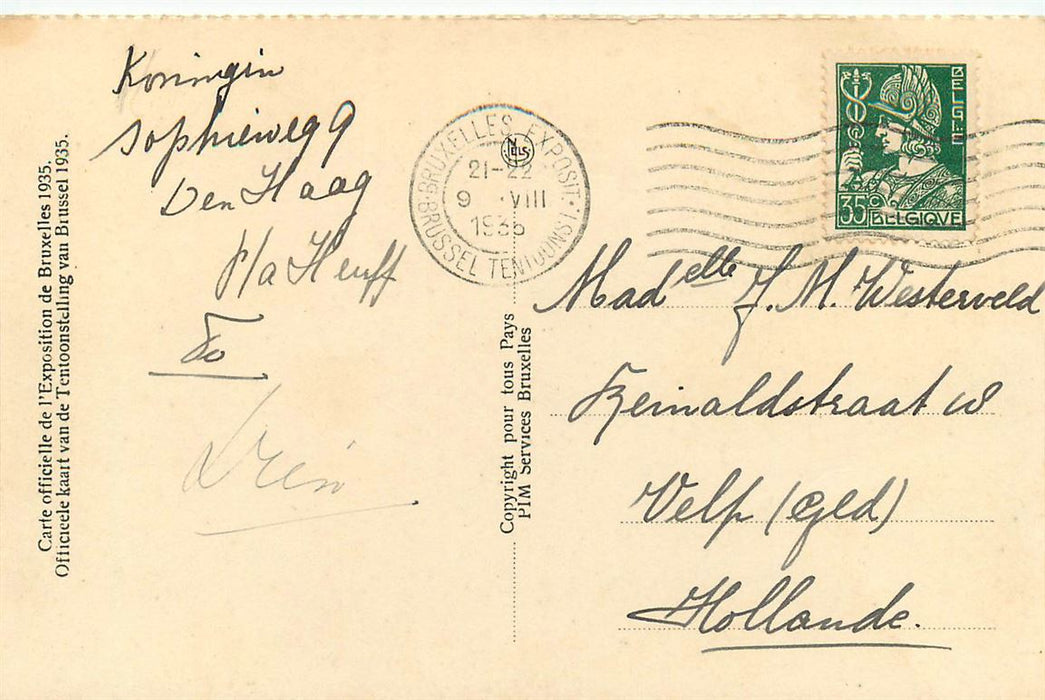 Koningin
Sophieweg 9
Den Haag
p/a Heuff
Carte officielle de l'Exposition de Bruxelles 1935.
Officieele kaart van de Tentoonstelling van Brussel 1935.
Copyright pour tous Pays
PIM Services Bruxelles
NELS
BRUXELLES EXPOSIT.
21-22
9 VIII
1935
BRUSSEL TENTOONST.
BELGIË
35c
BELGIQVE
Madelle J. M. Westerveld
Velp (Geld)
Hollande.